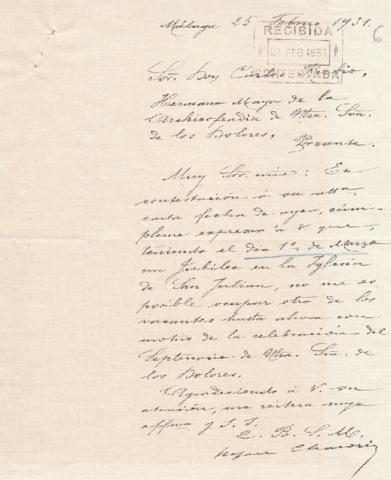 Málaga 25 Febrero 1931.
6
RECIBIDA
FEB. 1931
CONTESTADA
Sr. Don Carlos Rubio,
Hermano Mayor de la
Archicofradía de Ntra. Sra.
de los Dolores.
Presente.
Muy Sr. mío: En
contestación á su atta.
carta fecha de ayer, cúm-
pleme expresar á V. que,
teniendo el día 1º de Marzo
un Jubileo en la Iglesia
de San Julian, no me es
posible ocupar otro de los
vacantes hasta ahora con
motivo de la celebración del
Septenario de Ntra. Sra. de
los Dolores.
Agradeciendo á V. su
atención, me reitero suyo
affmo. y S. S.
Q. B. S. M.